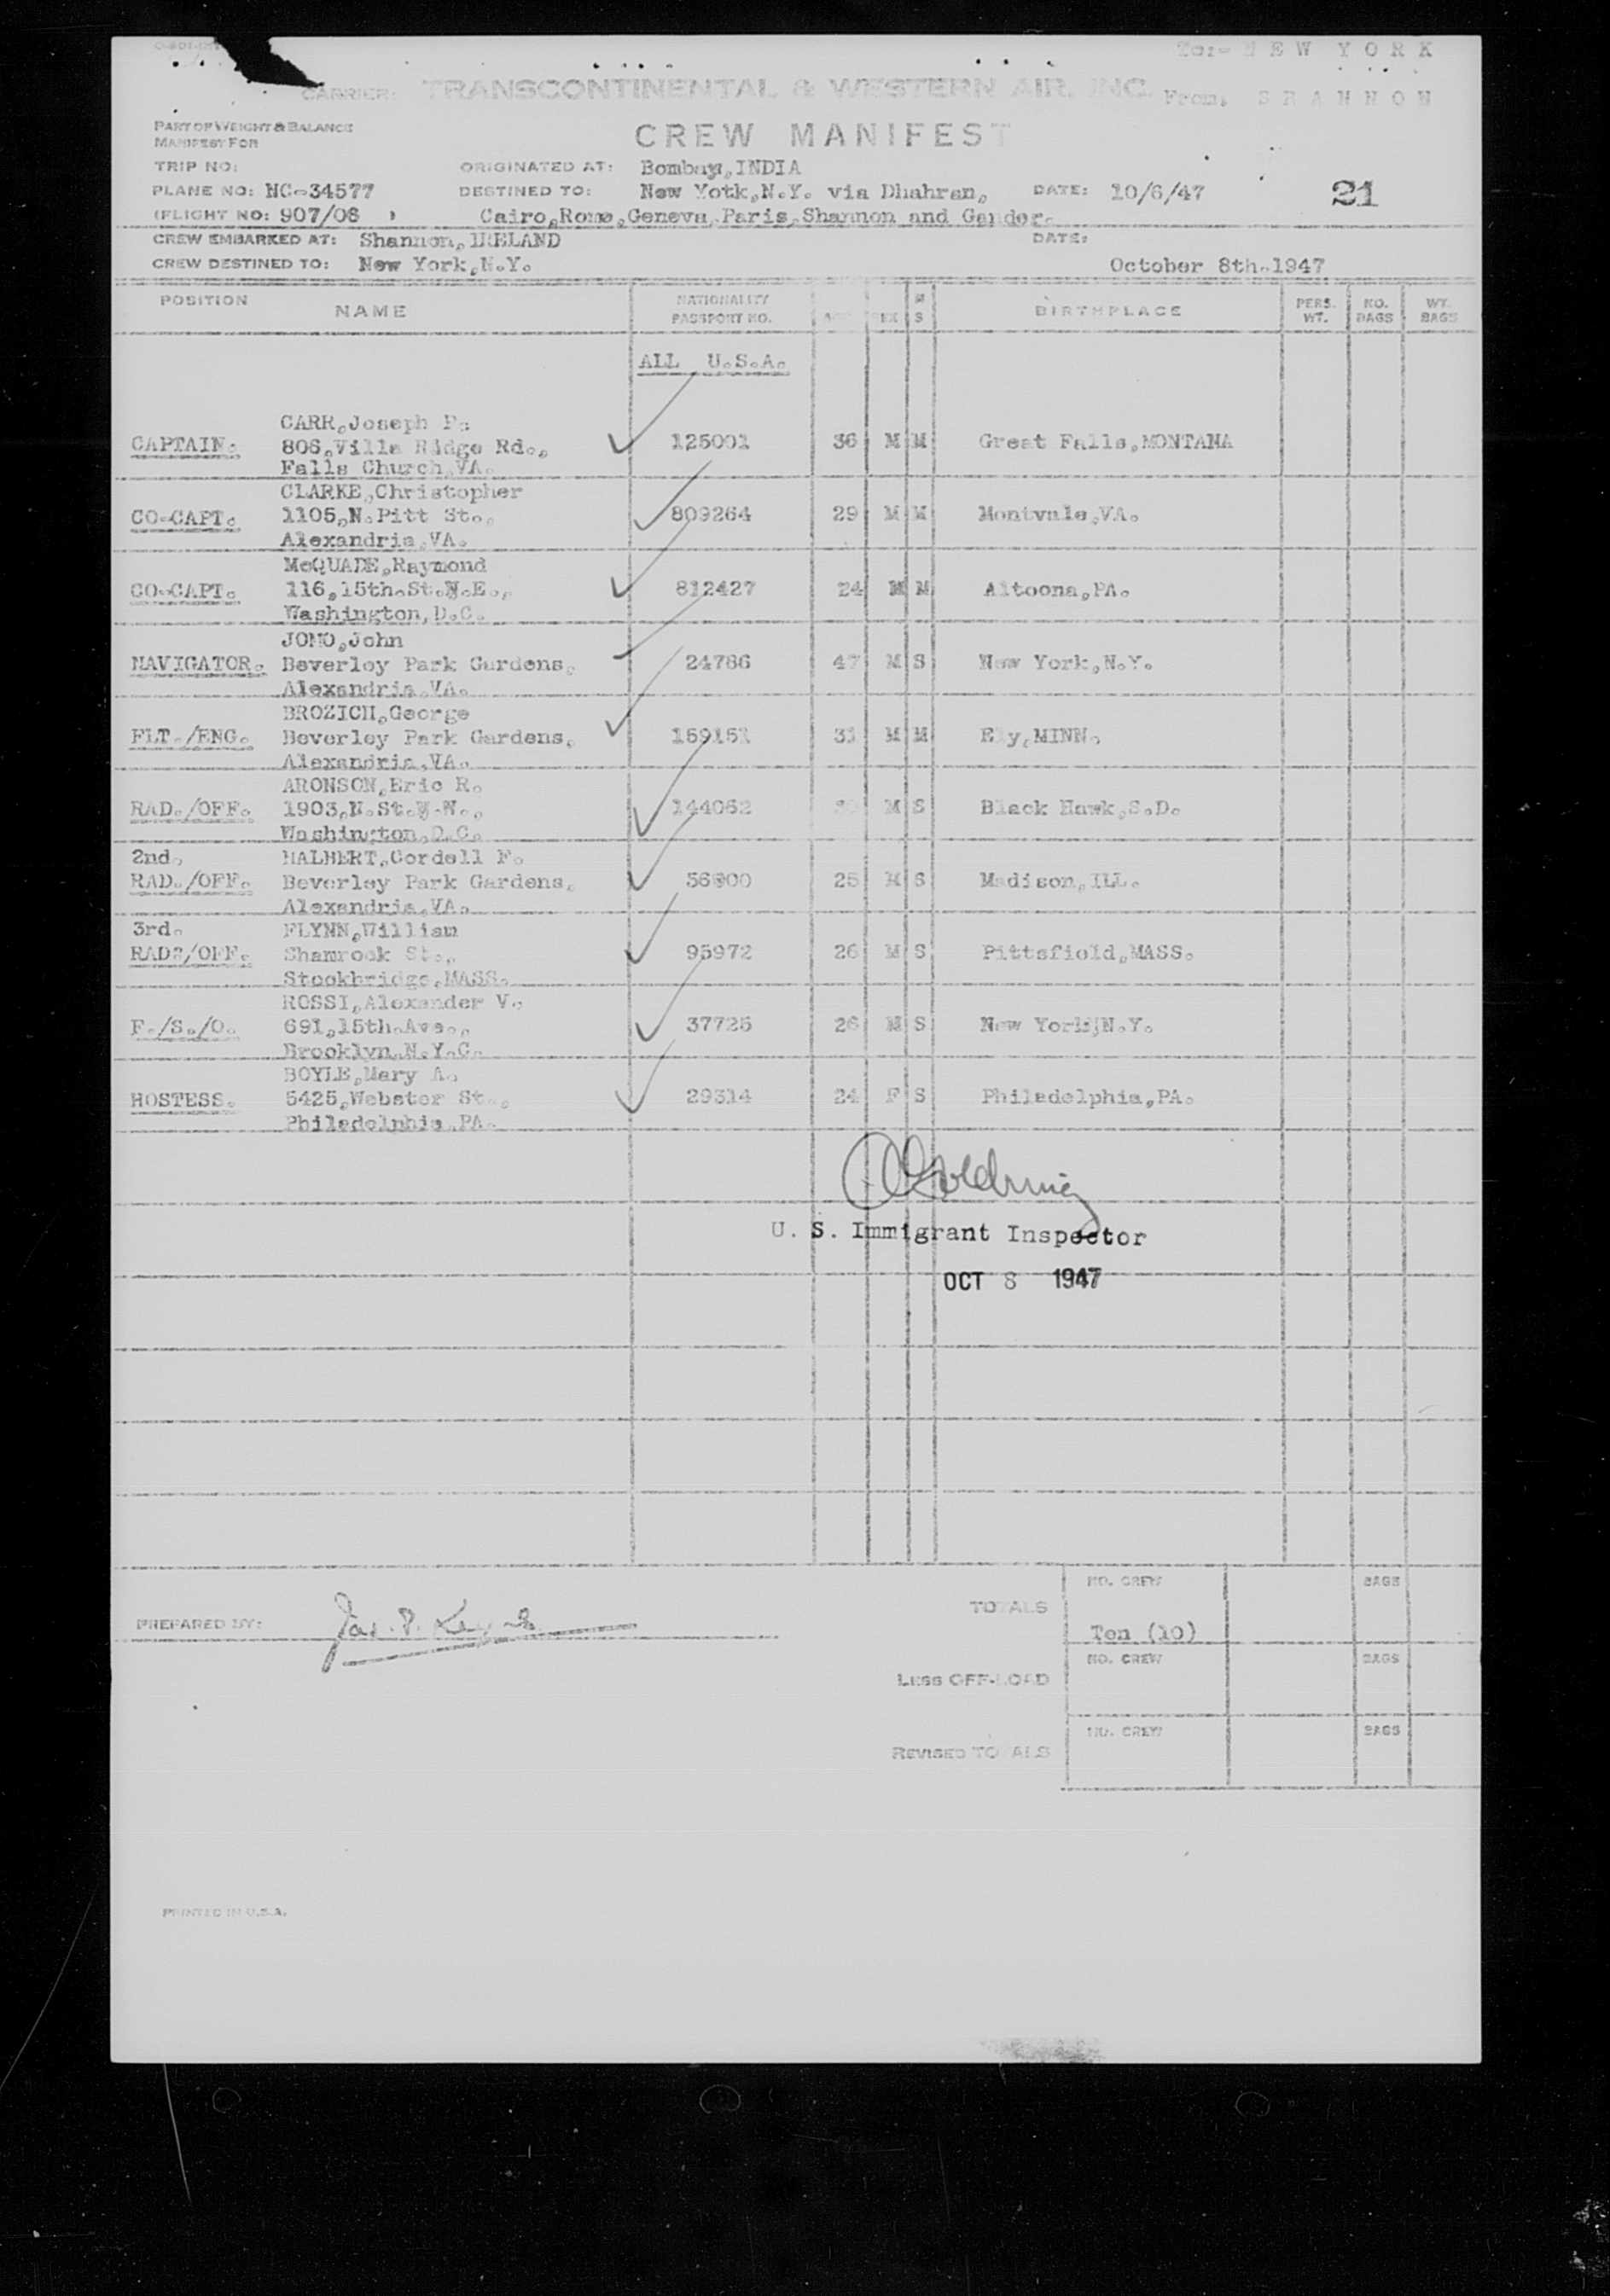 To:- NEW YORK
CARRIER: TRANSCONTINENTAL & WESTERN AIR, INC. From, SHANNON
PART OF WEIGHT & BALANCE
MANIFEST FOR
CREW MANIFEST
TRIP NO: ORIGINATED AT: Bombay,INDIA
PLANE NO: NC-34577 DESTINED TO: New Yotk,N.Y. via Dhahran, DATE: 10/6/47 21
(FLIGHT NO: 907/08 ) Cairo,Rome,Geneva,Paris,Shannon and Gander.
CREW EMBARKED AT: Shannon,IRELAND DATE:
CREW DESTINED TO: New York,N.Y. October 8th.1947
POSITION NAME NATIONALITY PASSPORT NO. AGE SEX M S BIRTHPLACE PERS. WT. NO. BAGS WT. BAGS
ALL U.S.A.
CARR,Joseph
CAPTAIN. 806,Villa Ridge Rd., 125001 36 M M Great Falls,MONTANA
Falls Church,VA.
CLARKE,Christopher
CO-CAPT. 1105,N.Pitt St., 809264 29 M M Montvale,VA.
Alexandria,VA.
McQUADE,Raymond
CO-CAPT. 116,15th.St.N.E., 812427 24 M M Altoona,PA.
Washington,D.C.
JOMO,John
NAVIGATOR. Beverley Park Gardens, 24786 47 M S New York,N.Y.
Alexandria,VA.
BROZICH,George
FLT./ENG. Beverley Park Gardens, 159151 31 M M Ely,MINN.
Alexandria,VA.
ARONSON,Eric R.
RAD./OFF. 1903,N.St.N.W., 144052 M S Black Hawk,S.D.
Washington,D.C.
2nd. HALBERT,Cordell F.
RAD./OFF. Beverley Park Gardens, 56900 25 M S Madison,ILL.
Alexandria,VA.
3rd. FLYNN,William
RAD?/OFF. Shamrock St., 95972 26 M S Pittsfield,MASS.
Stockbridge,MASS.
ROSSI,Alexander V.
F./S./O. 691,15th.Ave., 37725 26 M S New York,N.Y.
Brooklyn.N.Y.C.
BOYLE,Mary A.
HOSTESS. 5425,Webster St., 29314 24 F S Philadelphia,PA.
Philadelphia,PA.
U. S. Immigrant Inspector
OCT 8 1947
NO. CREW BAGS
TOTALS
PREPARED BY: Jas. P.
Ten (10)
NO. CREW BAGS
LESS OFF-LOAD
NO. CREW BAGS
REVISED TOTALS
PRINTED IN U.S.A.